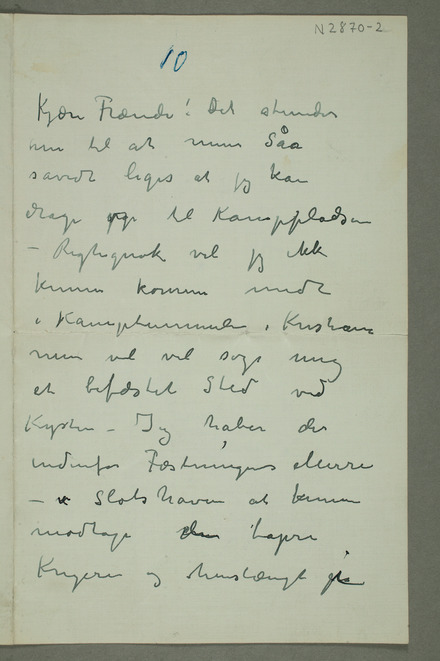 N2870-2
10
Kjære Frænde! Det stunder
nu til at mine Såa
savidt leges at jeg kan
drage til Kamppladsen
– Rigtignok vil jeg ikke
kunne komme midt
i Kamptummelen i Kristiania
men vil vel søge mig
et befæstet Sted ved
Kysten – Jeg haber der
indenfor Fæstningens Mure
– Slotshaven at kunne
modtage den tapre
Kriger og henslængt på